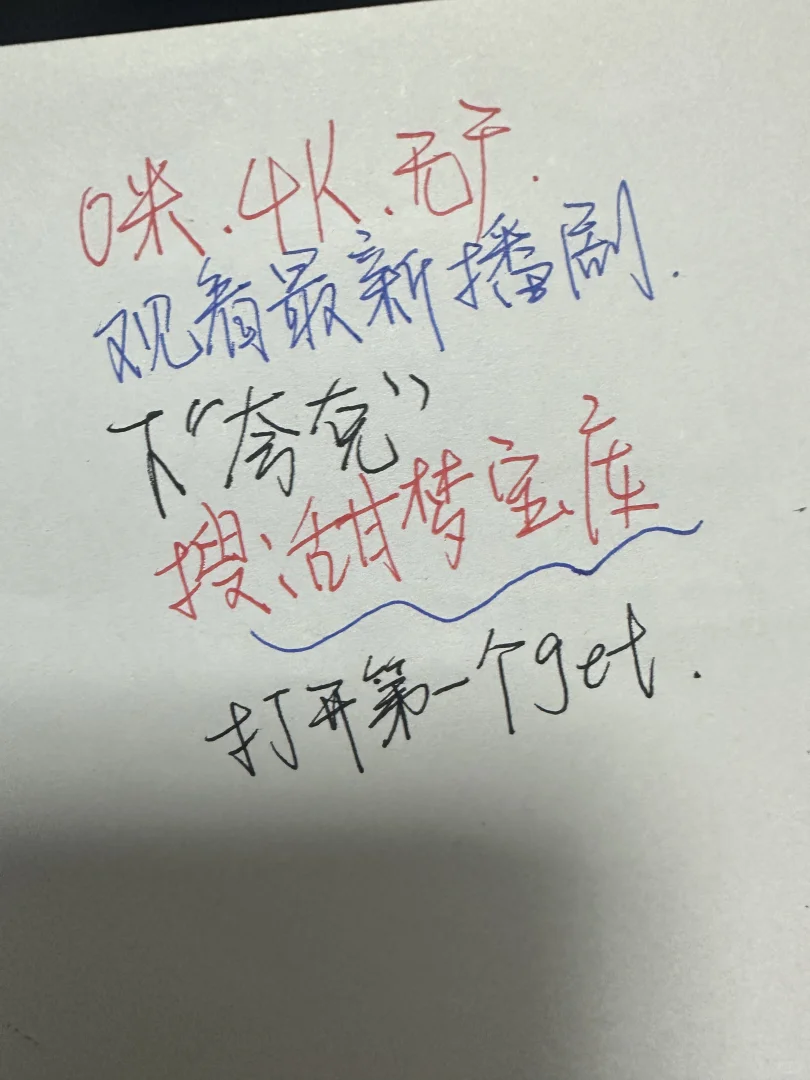 0米.4K.无广.
观看最新播剧.
下“夸克”
搜:甜梦宝库
打开第一个get.